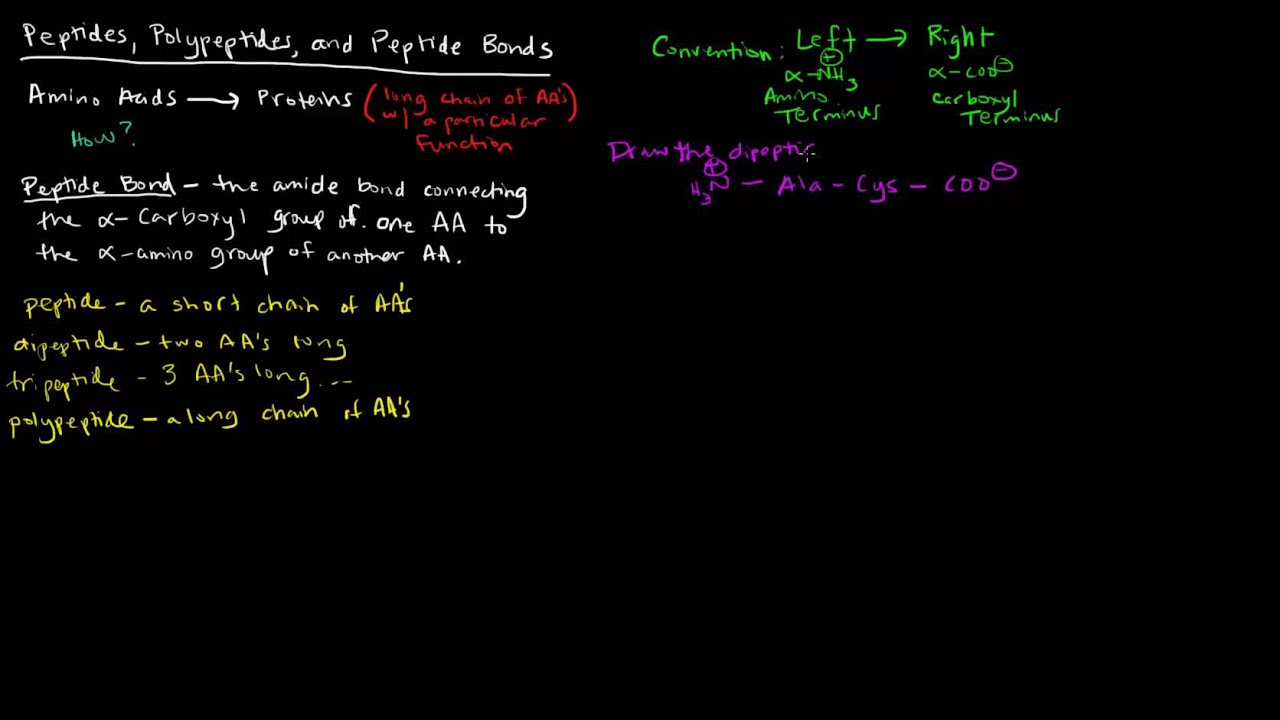 Peptides, Polypeptides, and Peptide Bonds
Amino Acids → Proteins (long chain of AA's
w/ a particular
Function)
How?
Peptide Bond - the amide bond connecting
the α-Carboxyl group of. one AA to
the α-amino group of another AA.
peptide - a short chain of AA's
dipeptide - two AA's long
tripeptide - 3 AA's long ...
polypeptide - a long chain of AA's
Convention: Left → Right
α-NH₃⊕ α-COO⊖
Amino Terminus
Carboxyl Terminus
Draw the dipeptid
H₃N⊕ - Ala - Cys - COO⊖